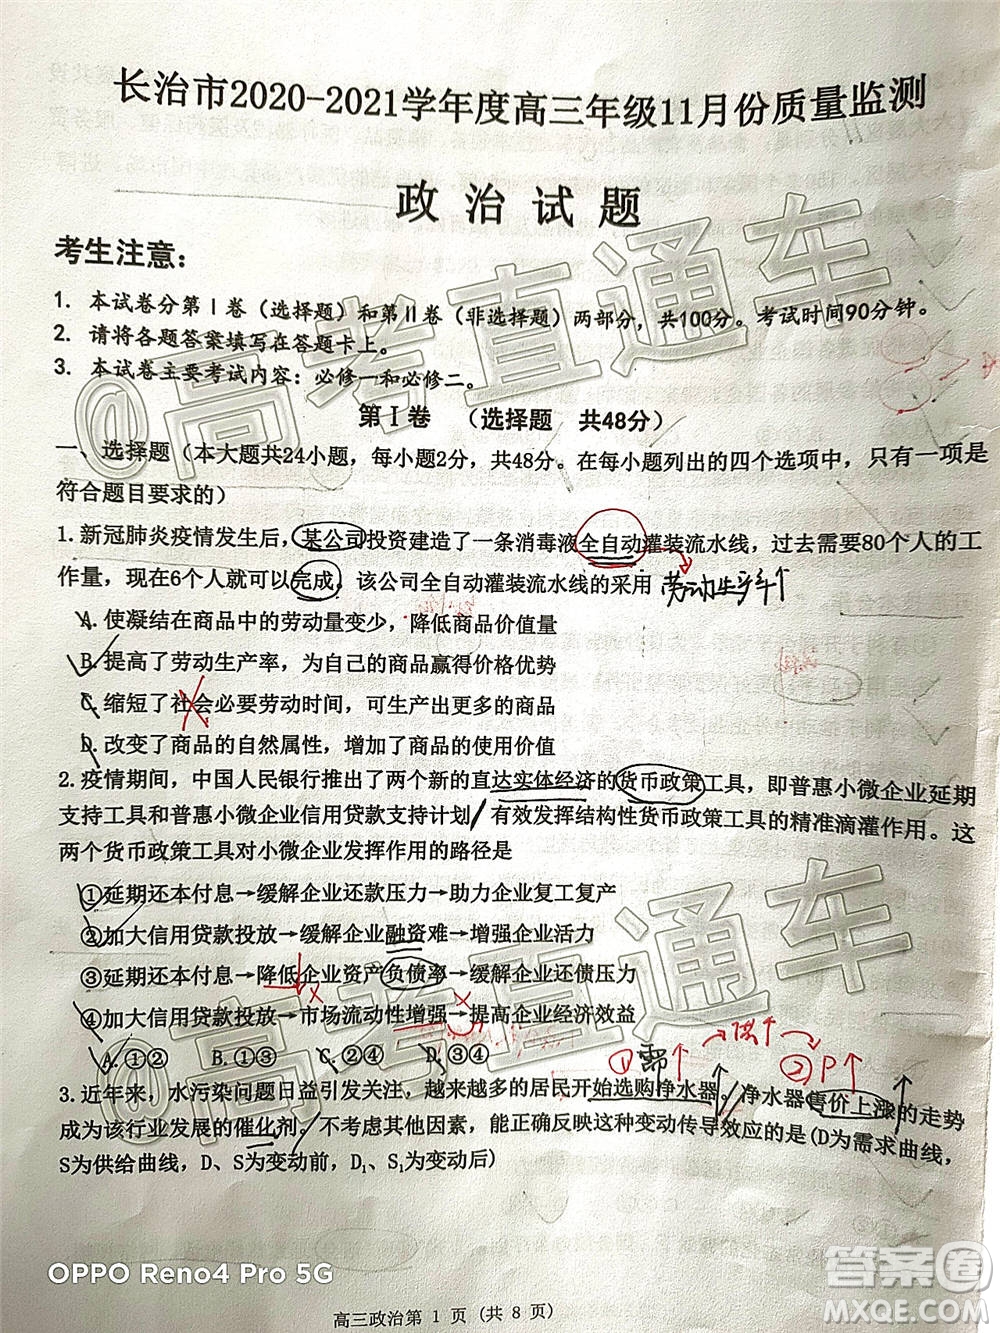 长治市2020-2021学年度高三年级11月份质量监测
政治试题
考生注意：
1. 本试卷分第Ⅰ卷（选择题）和第Ⅱ卷（非选择题）两部分，共100分。考试时间90分钟。
2. 请将各题答案填写在答题卡上。
3. 本试卷主要考试内容：必修一和必修二。
第Ⅰ卷 （选择题 共48分）
一、选择题（本大题共24小题，每小题2分，共48分。在每小题列出的四个选项中，只有一项是
符合题目要求的）
1. 新冠肺炎疫情发生后，某公司投资建造了一条消毒液全自动灌装流水线，过去需要80个人的工
作量，现在6个人就可以完成，该公司全自动灌装流水线的采用
A. 使凝结在商品中的劳动量变少，降低商品价值量
B. 提高了劳动生产率，为自己的商品赢得价格优势
C. 缩短了社会必要劳动时间，可生产出更多的商品
D. 改变了商品的自然属性，增加了商品的使用价值
2. 疫情期间，中国人民银行推出了两个新的直达实体经济的货币政策工具，即普惠小微企业延期
支持工具和普惠小微企业信用贷款支持计划，有效发挥结构性货币政策工具的精准滴灌作用。这
两个货币政策工具对小微企业发挥作用的路径是
①延期还本付息→缓解企业还款压力→助力企业复工复产
②加大信用贷款投放→缓解企业融资难→增强企业活力
③延期还本付息→降低企业资产负债率→缓解企业还债压力
④加大信用贷款投放→市场流动性增强→提高企业经济效益
A.①② B.①③ C.②④ D.③④
①需↑ → 供↑ → ②P↑
3. 近年来，水污染问题日益引发关注，越来越多的居民开始选购净水器。净水器售价上涨的走势
成为该行业发展的催化剂。不考虑其他因素，能正确反映这种变动传导效应的是(D为需求曲线，
S为供给曲线，D、S为变动前，D₁、S₁为变动后)
OPPO Reno4 Pro 5G
高三政治第 1 页（共 8 页）
@高考直通车
@高考直通车
答案圈
MXQE.COM